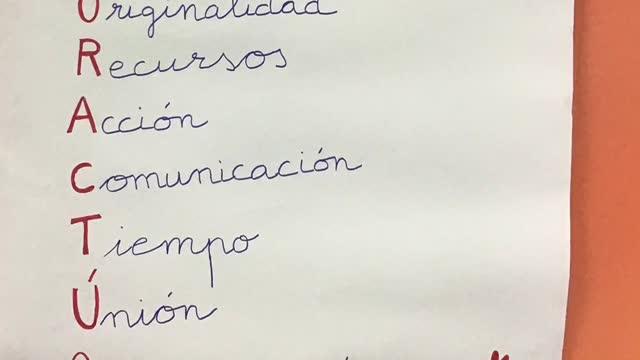 Originalidad
Recursos
Acción
Comunicación
Tiempo
Únión